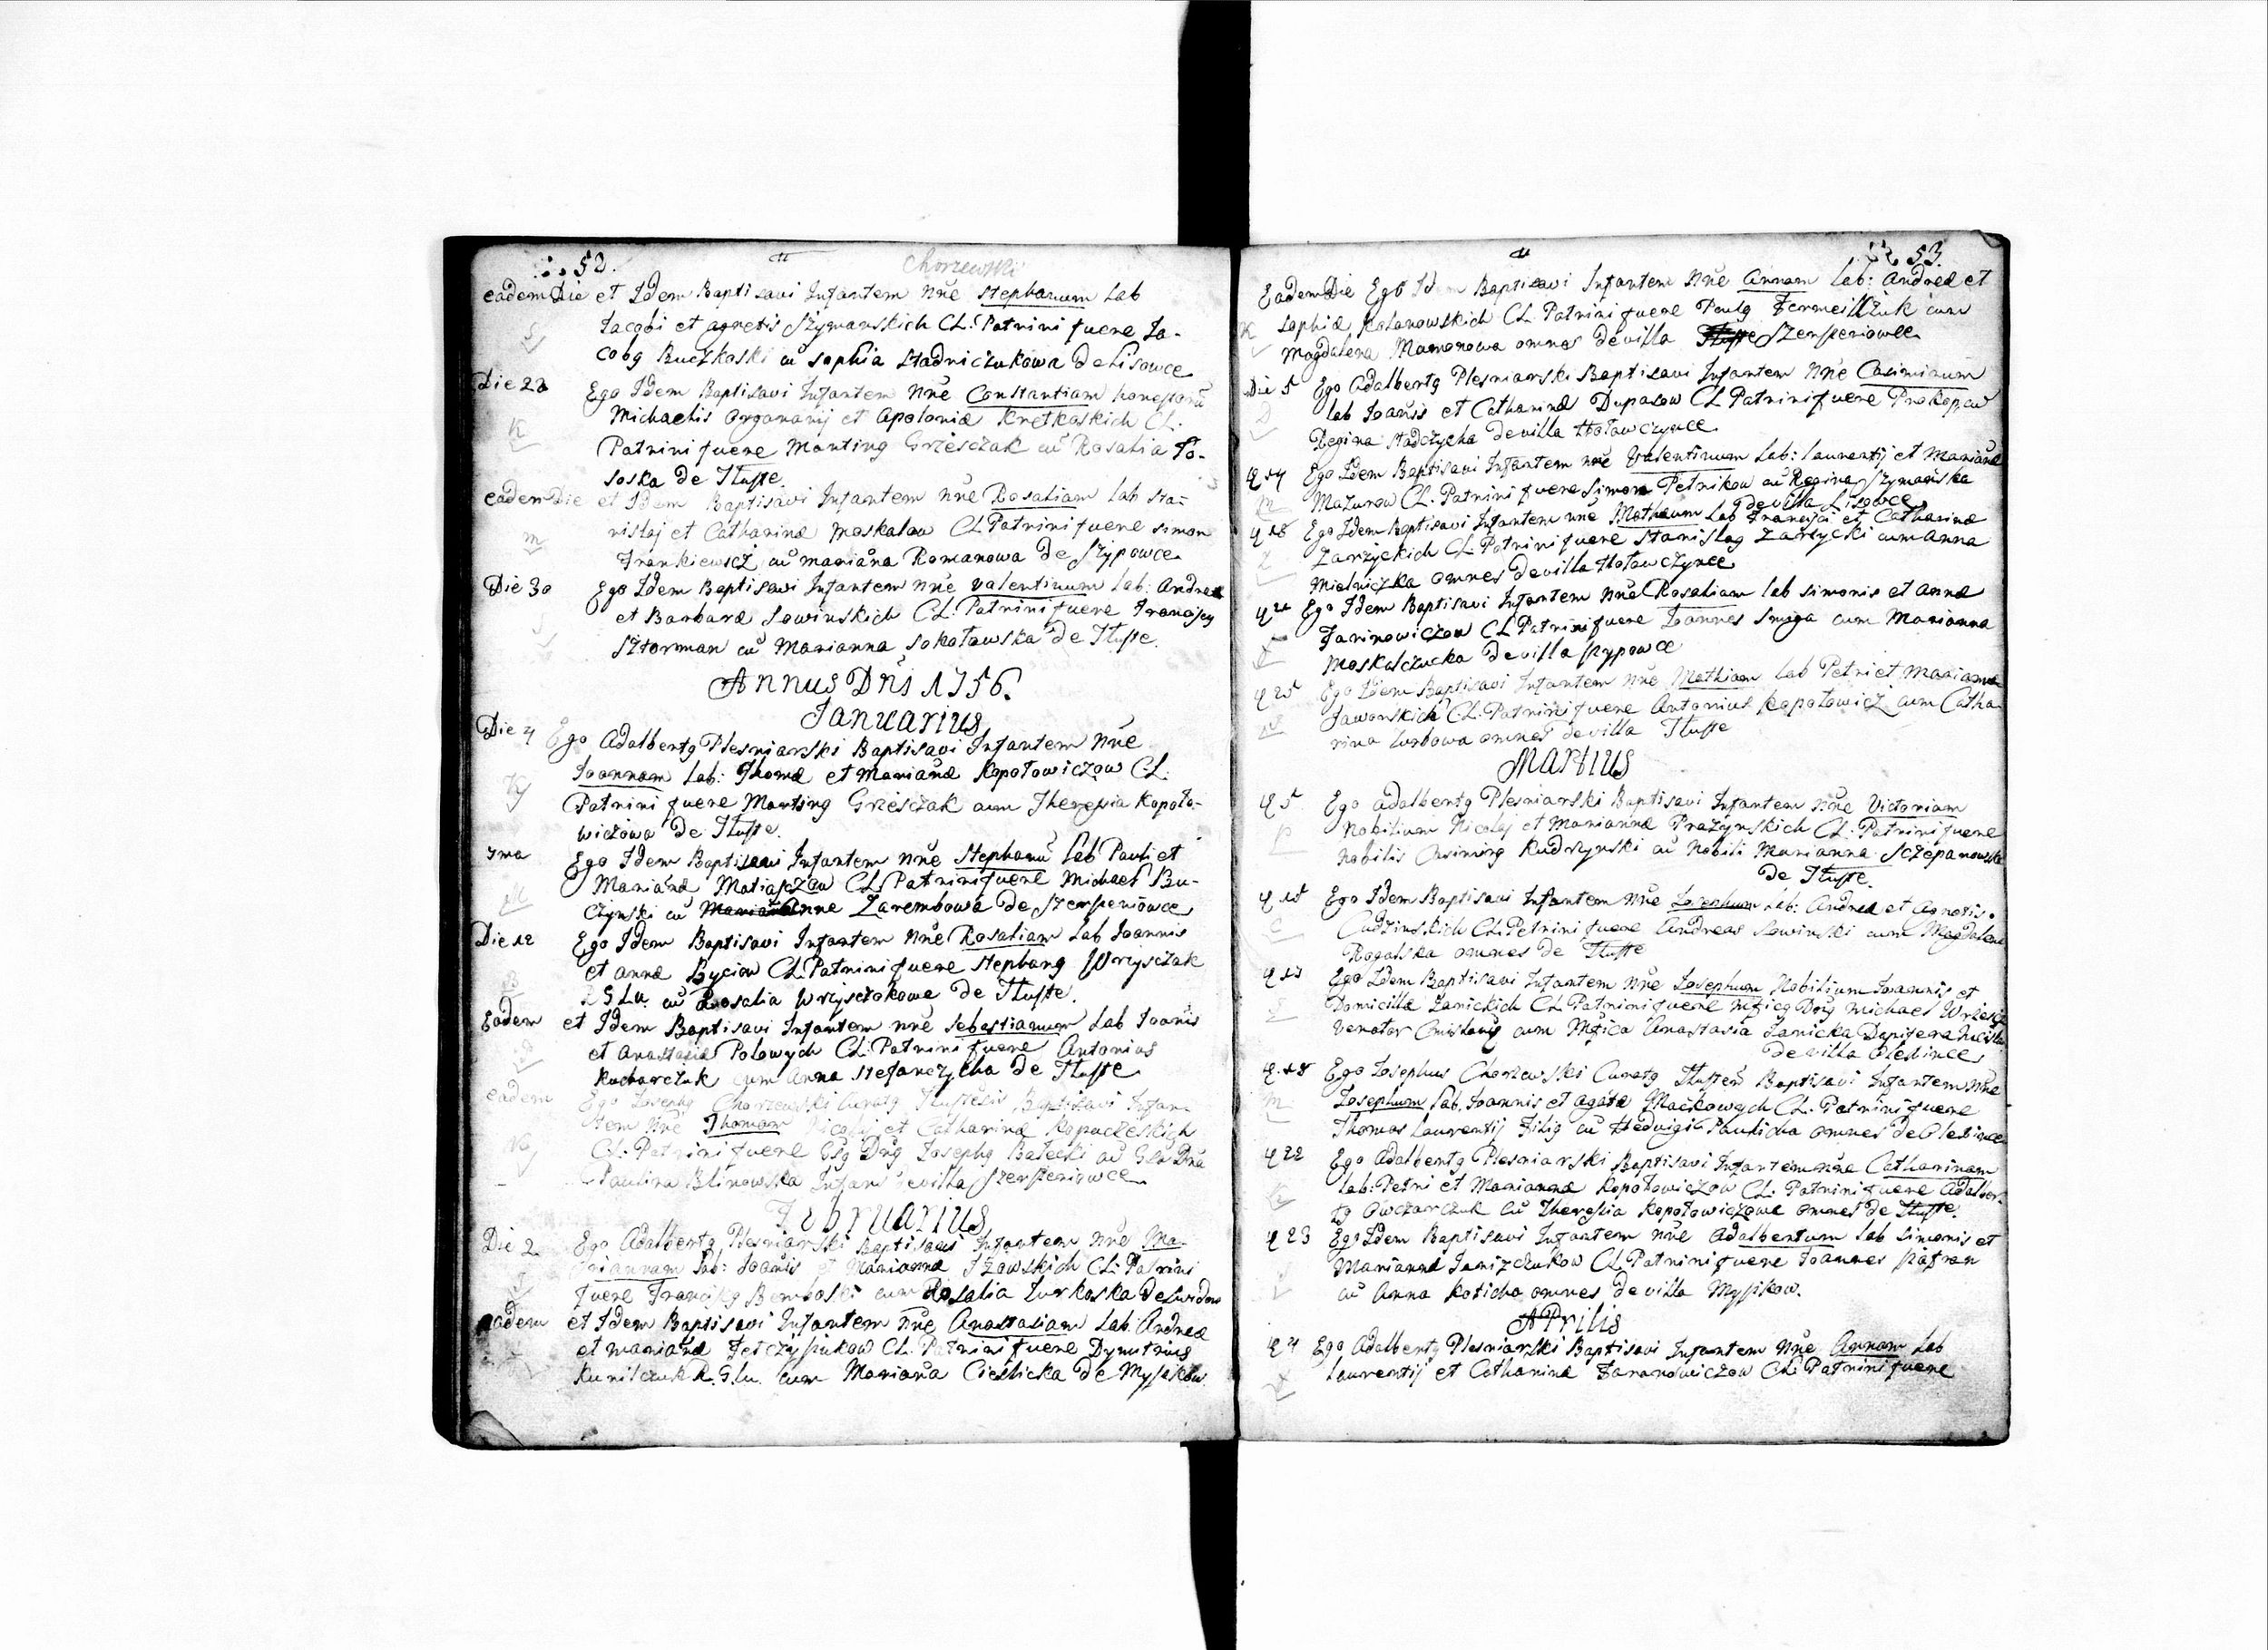 52.
Chorzewski
eadem Die et Idem Baptisavi Infantem nñe Stephanum Lab
Jacobi et agnetis Szymanskich CL. Patrini fuere Ja-
cobg Buczkoski cũ Sophia Stadniczukowa de Lisowce
Die 22 Ego Idem Baptisavi Infantem Nñe Constantiam honestorũ
Michaelis Organarij et Apoloniæ Kretkoskich CL.
K
Patrini fuere Marting Grzesczak cũ Rosalia So-
soska de Tłuste.
eadem Die et Idem Baptisavi Infantem nñe Rosaliam Lab Sta-
nislaj et Catharinæ Moskalow CL Patrini fuere Simon
m
Frankiewicz cũ Mariana Romanowa de Szypowce
Die 30 Ego Idem Baptisavi Infantem nñe Valentinum Lab: Andreæ
et Barbaræ Sowinskich CL. Patrini fuere Franciscg
S
Sztorman cũ Marianna Sokołowska de Tłuste.
Annus Dñi 1756.
Januarius
Die 4 Ego Adalbertg Plesniarski Baptisavi Infantem nñe
Joannam Lab: Thomæ et Marianæ Kopołowiczow CL.
Patrini fuere Marting Grzesczak cum Theresia Kopoło-
wiczowa de Tłuste.
Ego Idem Baptisavi Infantem nñe Stephanũ Lab Pauli et
Marianæ Matiaszow CL Patrini fuere Michael Bu-
M
czynski cũ Anna Zarembowa de Szerszeniowce
Die 12 Ego Idem Baptisavi Infantem nñe Rosaliam Lab Joannis
et Annæ Byciow CL Patrini fuere Stephang Wrzysczak
B
R G Lu. cũ Rosalia Wrzysczakowa de Tłuste.
Eadem et Idem Baptisavi Infantem nñe Sebastianum Lab Joanis
et Anastasiæ Polowych CL: Patrini fuere Antonius
Kucharczuk cum Anna Stefanczycha de Tłuste
eadem Ego Josephg Chorzewski Curatg Baptisavi Infan-
tem nñe Thomam Nicolaj et Catharinæ Kopaczeskich
CL. Patrini fuere Gsg Dng Josephg Bałecki cũ Gsa Dna
Paulina Blinowska de villa Szerszeniowce
Februarius
Die 2 Ego Adalbertg Plesniarski Baptisavi Infantem nñe Ma-
riannam Lab: Joanis et Mariannæ CL: Patrini
fuere Franciscg cum Rosalia Turkoska de
eadem et Idem Baptisavi Infantem nñe Anastasiam Lab Andreæ
et Marianæ CL. Patrini fuere Dymitrius
Kurilczuk R. G. Lu. cum Mariana Cieslicka de Myszkow
53.
Eadem Die Ego Idem Baptisavi Infantem Nñe Annam Lab: Andreæ et
K
Sophiæ Kolanowskich CL Patrini fuere Paulg cum
Magdalena Mamonowa omnes de villa Szerszeniowce
Die 5 Ego Adalbertg Plesniarski Baptisavi Infantem nñe Casimirum
D
Lab Joanis et Catharinæ Dupalow CL Patrini fuere Prokop cũ
Regina Stadczycha de villa Hołowczynce
Ego Idem Baptisavi Infantem nñe Valentinum Lab: Laurentij et Marianæ
m
Mazurow CL. Patrini fuere Simon Petrikow cũ Regina Szymanska
de villa Lisowce
q 18 Ego Idem Baptisavi Infantem nñe Mathæum Lab Francisci et Catharinæ
Z
Zarzyckich CL Patrini fuere Stanislag Zarzycki cum Anna
Mielniczka omnes de villa Hołowczynce
Ego Idem Baptisavi Infantem nñe Rosaliam Lab Simonis et Annæ
Jarinowiczow CL Patrini fuere Joannes Smaga cum Marianna
Moskalczucka de villa Szypowce
q 25 Ego Idem Baptisavi Infantem nñe Mathiam Lab Petri et Mariannæ
Jaworskich CL. Patrini fuere Antonius Kopołowicz cum Catha-
rina omnes de villa Tłuste
Martius
q 5 Ego Adalbertg Plesniarski Baptisavi Infantem Nñe Victoriam
P
Nobilium Nicolaj et Mariannæ Prażynskich CL. Patrini fuere
Nobilis Casimirg Kudrzynski cũ Nobili Marianna Sczepanowska
de Tłuste.
q 15 Ego Idem Baptisavi Infantem Nñe Josephum Lab: Andreæ et Agnetis
C
Cudzinskich CL. Patrini fuere Andreas Sowinski cum Magdalena
Rogalska omnes de Tłuste
Ego Idem Baptisavi Infantem Nñe Josephum Nobilium Joannis et
Domicillæ Łanickich CL Patrini fuere Mficg Dng Michael
Venator cum Mfica Anastasia Łanicka Dapifera
de villa Olexince
q 18 Ego Josephus Chorzewski Curatg Tłusteñ Baptisavi Infantem Nñe
m
Josephum Lab. Joannis et Agatæ Maćkowych CL. Patrini fuere
Thomas Laurentij Filig cũ Hedvigi Paulicha omnes de Olexince
q 22 Ego Adalbertg Plesniarski Baptisavi Infantem nñe Catharinam
K
Lab: Petri et Mariannæ Kopołowiczow CL. Patrini fuere Adalber-
tg Owczarczuk cũ Theresia Kopołowiczowa omnes de Tłuste.
q 23 Ego Idem Baptisavi Infantem nñe Adalbertum Lab Simonis et
Mariannæ Janiszczukow CL Patrini fuere Joannes Szafran
cũ Anna Koticha omnes de villa Myszkow.
APrilis
q 4 Ego Adalbertg Plesniarski Baptisavi Infantem nñe Annam Lab
Laurentij et Catharinæ Jaranowiczow CL Patrini fuere